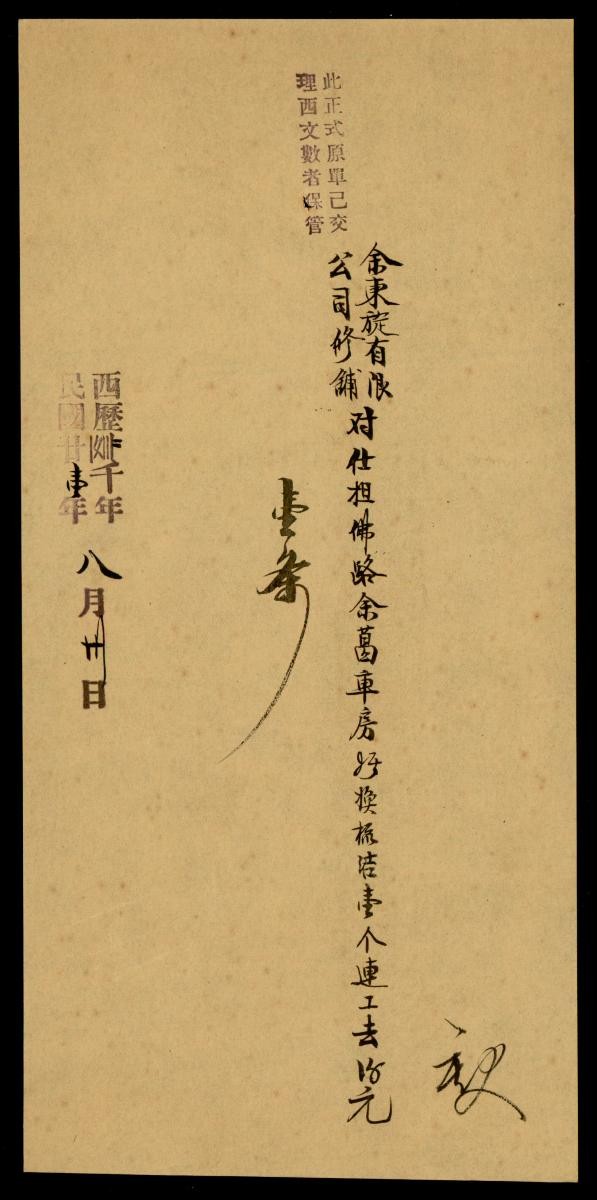 此正式原單已交
理西文數者保管
余東旋有限
公司修舖
对仕担佛路余葛車房 換 壹个連工去 元
壹条
西歷 千年
民國廿壹年
八月卅日